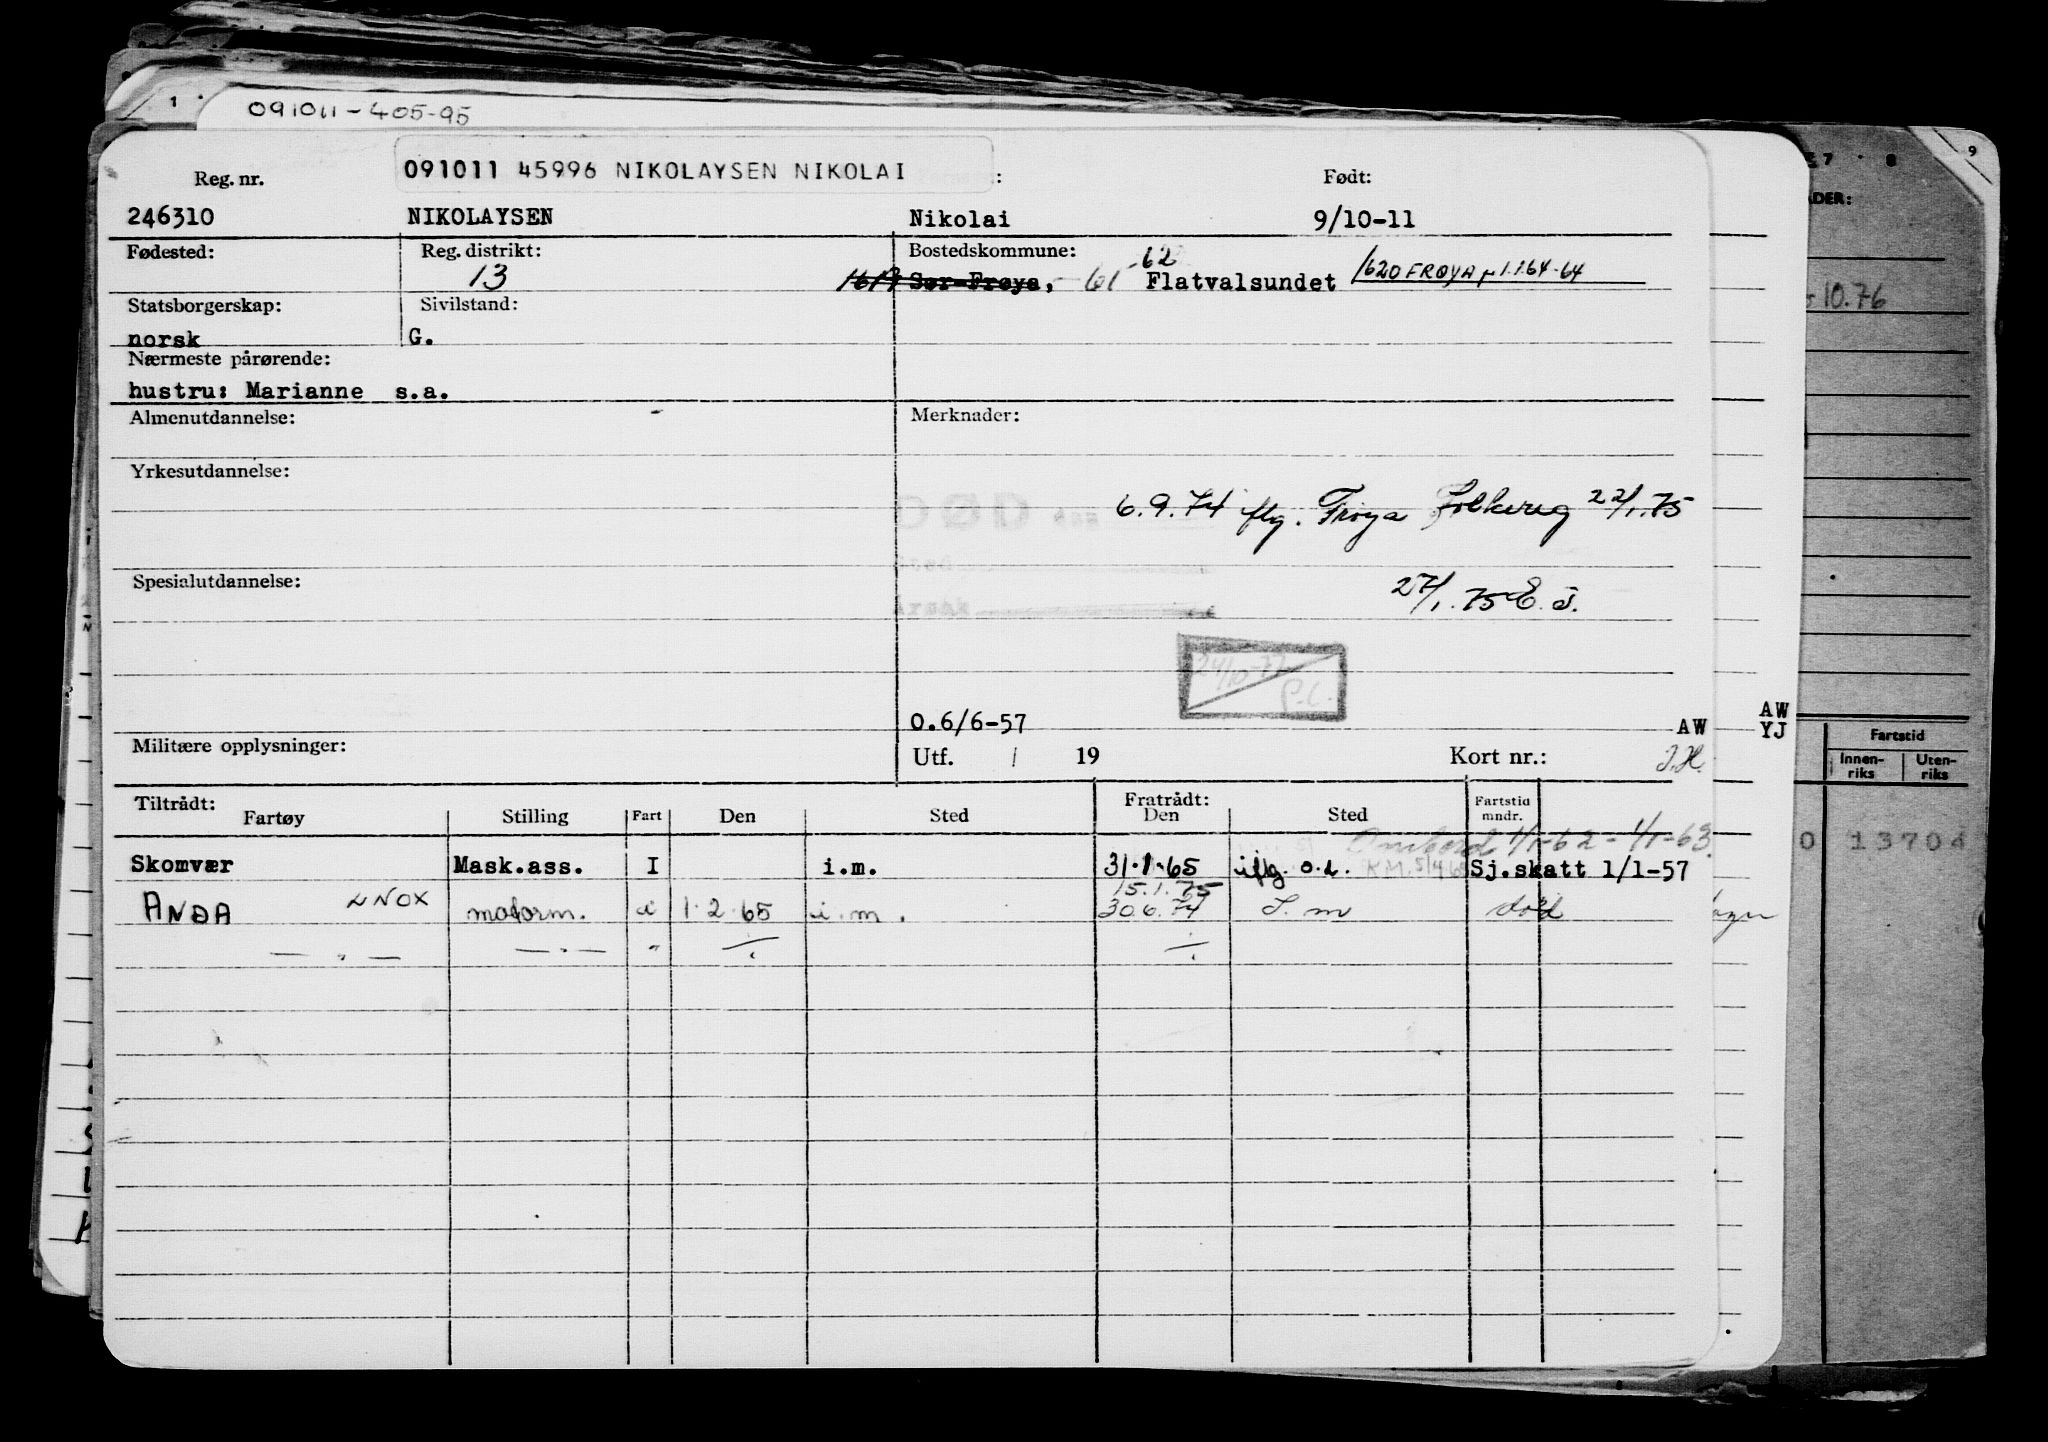 091011-405-95
1
091011 45996 NIKOLAYSEN NIKOLAI
Reg. nr. : Født:
246310 NIKOLAYSEN Nikolai 9/10-11
Fødested: Reg. distrikt: Bostedskommune:
13 1617 Sør-Frøya, -61 -62 Flatvalsundet 1620 FRØYA 1.1.64-64
Statsborgerskap: Sivilstand:
norsk G.
Nærmeste pårørende:
hustru: Marianne s.a.
Almenutdannelse: Merknader:
Yrkesutdannelse:
DØD
6.9.74 iflg. Frøya Folkereg 22/1.75
Sted
Spesialutdannelse:
27/1.75 E.J.
Årsak
24/10-77
P.L.
O.6/6-57 AW
Militære opplysninger: Utf. / 19 Kort nr.: J.H.
AW
YJ
Tiltrådt: Fratrådt: Fartstid
Fartøy Stilling Fart Den Sted Den Sted mndr.
Ombord 1/1-62 - 1/1-63
Skomvær Mask.ass. I i.m. 31.1.65 iflg. o.l. Sj.skatt 1/1-57
15.1.75
ANDA LNOX motorm. i 1.2.65 i.m. 30.6.74 I.m død
— " — — " — "
7 8 9
10.76
Fartstid
Innen-riks Uten-riks
0 13704